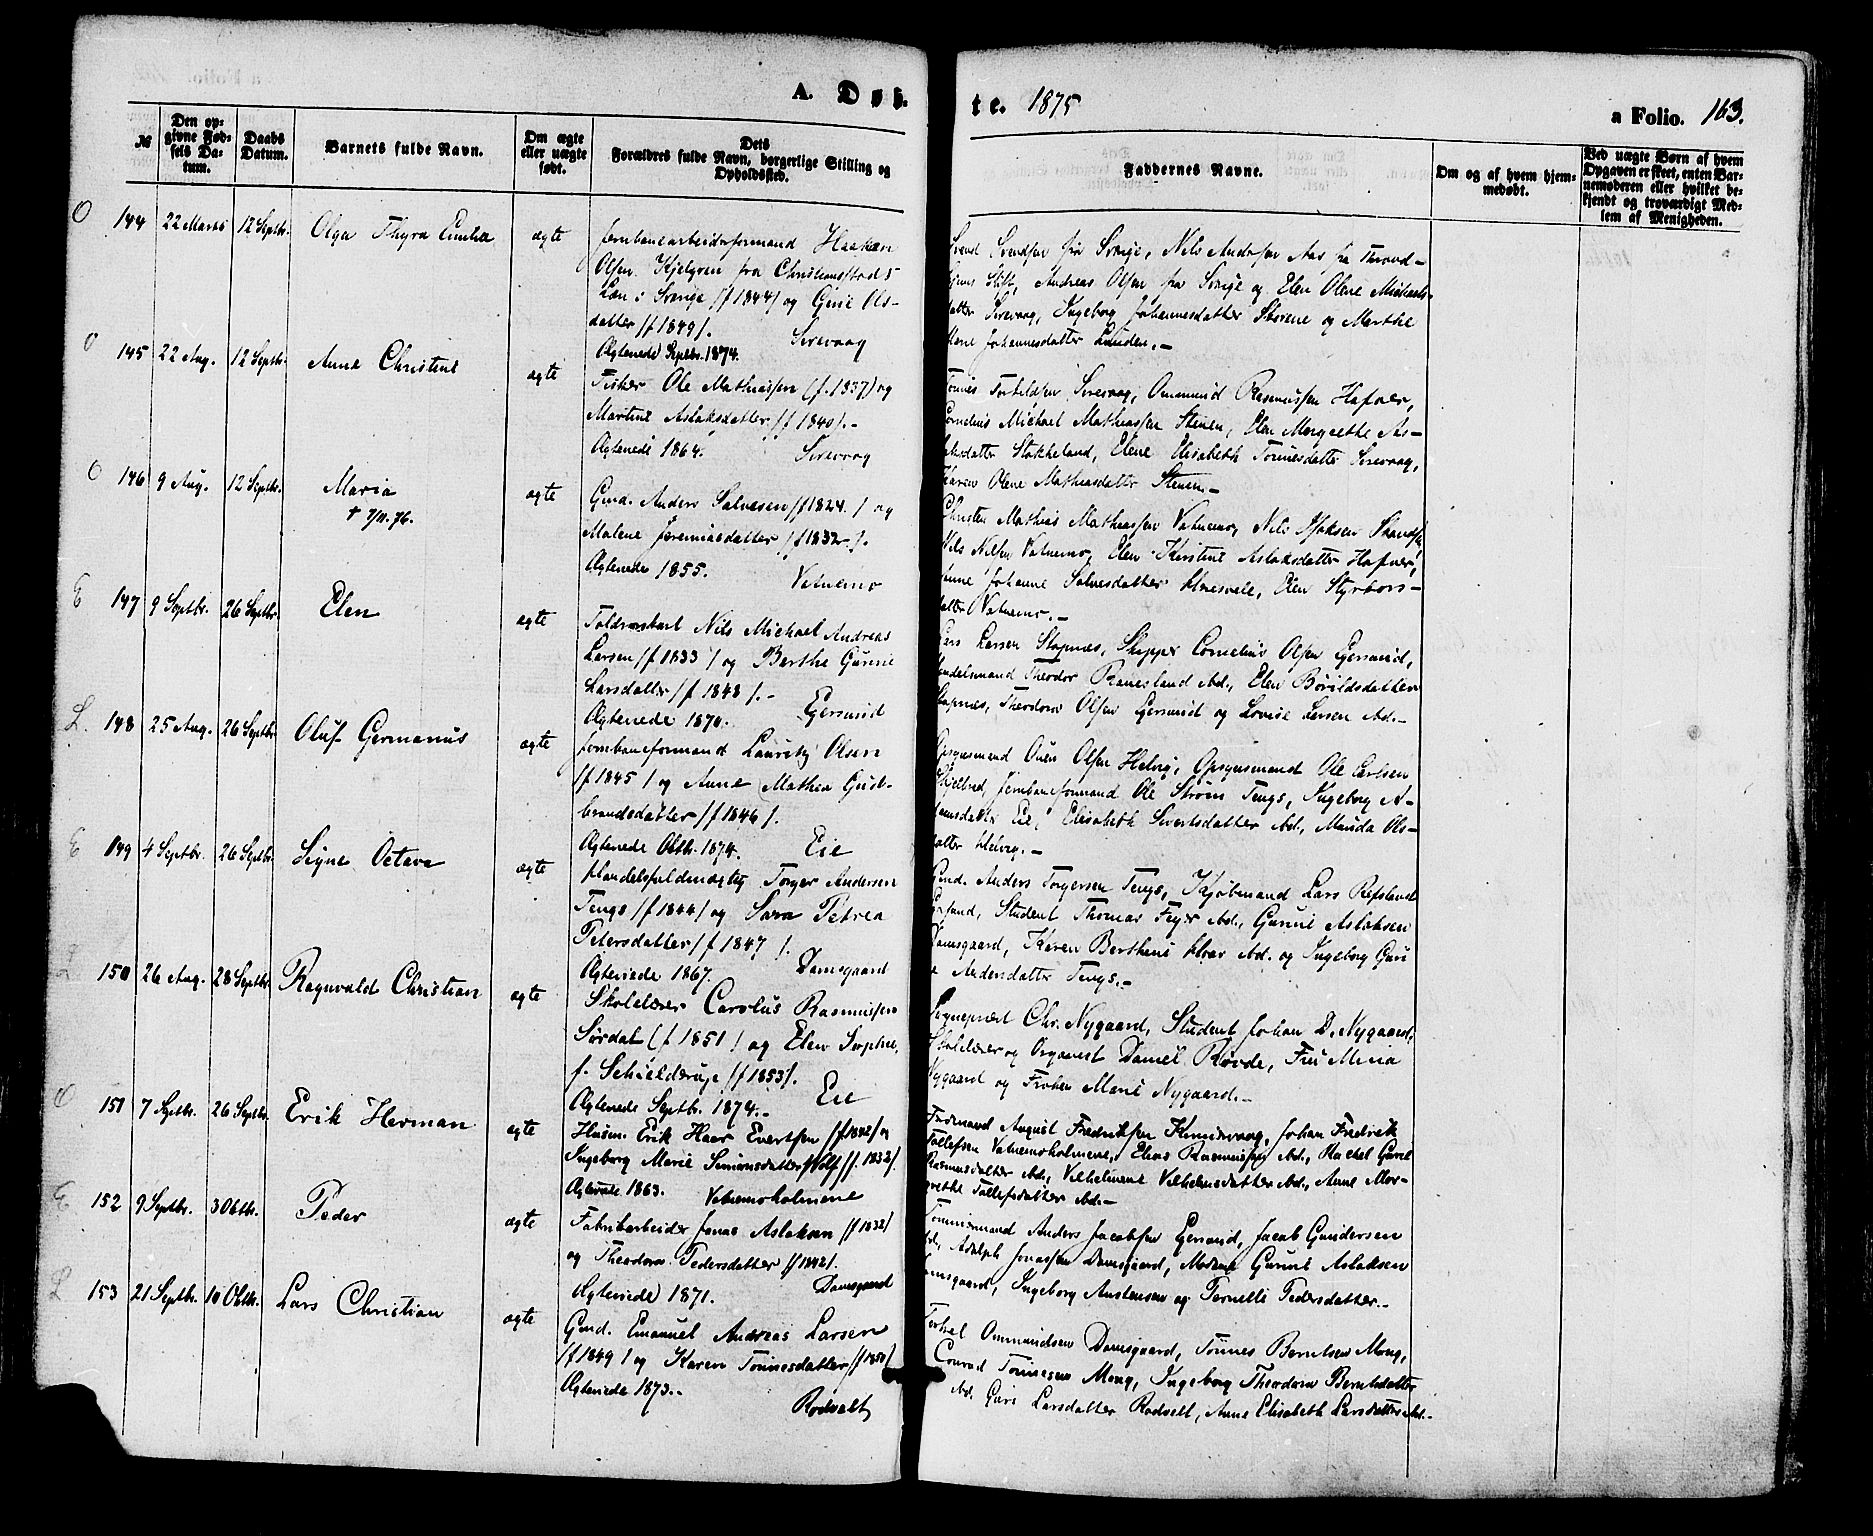 A. Døb-
te. 1875
a Folio. 163.
№
Den op-
givne Fød-
sels Da-
tum.
Daabs
Datum.
Barnets fulde Navn.
Om ægte
eller uægte
født.
Dets
Forældres fulde Navn, borgerlige Stilling og
Opholdssted.
Faddernes Navne.
Om og af hvem hjem-
medøbt.
Ved uægte Børn af hvem
Opgaven er skeet, enten Bar-
nemoderen eller hvilket be-
kjendt og troværdigt Med-
lem af Menigheden.
O 144 22 Marts 12 Septbr. Olga Thyra Emilia ægte
Jernbanearbeiderformand Haakan
Olsen Kjelgren fra Christiansstads
Læn i Sverige /f 1844/ og Gurie Ols-
datter /f 1849/. Sirevaag
Ægteviede Septbr. 1874.
Svend Svendsen fra Sverige, Nils Andersen Aas fra Trond-
hjems Stift, Andreas Olsen fra Sverige og Elen Olene Michaels-
datter Sirevaag, Ingeborg Johannesdatter Skorene og Marthe
Johannesdatter Lunden.-
O 145 22 Aug. 12 Septbr. Anna Christine ægte
Fisker Ole Mathiassen (f. 1837) og
Martine Aslaksdatter /f 1840/.-
Ægteviede 1864. Sirevaag
Tønnes Torkildsen Sirevaag, Ommund Rasmussen Hafsøe,
Cornelius Michael Mathiassen Stenen, Elen Margrethe As-
laksdatter Stokkeland, Elene Elisabeth Tønnesdatter Sirevaag,
Karen Olene Mathiasdatter Stenen.-
O 146 9 Aug. 12 Septbr. Maria ægte
† 7/11. 76.
Gmd. Anders Salvesen /f 1824./ og
Malene Jeremiasdatter /f 1832/.
Ægteviede 1855. Vatnemo
Christen Mathias Mathiassen Vatnemo, Nils
Nils Nilsen Vatnemo, Elen Kirstine Aslaksdatter Hafsøe,
Anne Johanne Salvesdatter
datter Vatnemo.-
E 147 9 Septbr. 26 Septbr. Elen ægte
Toldroerskarl Nils Michael Andreas
Larsen /f 1833/ og Berthe Gurine
Larsdatter /f 1843/.-
Ægteviede 1870. Egersund
Lars Larsen Stapnæs, Skipper Cornelius Olsen Egersund,
Handelsmand Theodor Ranesland ibd., Elen Børildsdatter
Stapnæs, Theodora Olsen Egersund og Lovise Larsen ibd.-
L. 148 25 Aug. 26 Septbr. Oluf Germanus ægte
Jernbaneformand Lauritz Olsen
/f 1845/ og Anne Mathea Gud-
brandsdatter /f 1846/.
Ægteviede Oktb. 1874. Eie
Opsynsmand Ouen Olsen Helvig, Opsynsmand Ole Carlsen
Jernbaneformand Ole Strøm Tengs, Ingeborg A-
damsdatter Eie, Elisabeth Sivertsdatter ibd., Manda Ols-
datter Helvig.-
E 149 4 Septbr. 26 Septbr. Signe Octava ægte
Handelsfuldmægtig Torger Andersen
Tengs /f 1844/ og Sara Petrea
Petersdatter /f 1847/.
Ægteviede 1867. Damsgaard
Gmd. Anders Torgersen Tengs, Kjøbmand Lars Refsland
Egersund, Student Thomas Feyer ibd., Gurine Aslaksen
Damsgaard, Karen Berthine Hoar ibd. og Ingeborg Guri
e Andersdatter Tengs.-
L 150 26 Aug. 28 Septbr. Ragnvald Christian ægte
Skolelærer Carolus Rasmussen
Sørdal (f 1851/ og Elen Sophie,
f. Schielderup /f 1853/.
Ægteviede Septbr. 1874.- Eie
Sogneprest Chr. Nygaard, Student Johan D. Nygaard,
Skolelærer og Organist Daniel Rovde, Fru Mena
Nygaard og Frøken Marie Nygaard.-
O 151 7 Septbr. 26 Septbr. Erik Herman ægte
Husm. Erik Haar Evertsen /f 1842/ og
Ingeborg Marie Simonsdatter Wolf /f. 1832/.
Ægteviede 1863. Vatnemoholmene
Ferdinand August Fredriksen Johan Fredrik
Tollefsen Vatnemoholmene, Elias Rasmussen ibd., Rachel Gurie
Rasmusdatter ibd., Vilhelmine Vilhelmsdatter ibd., Anne Mar-
grethe Tollefsdatter ibd.-
E 152 9 Septbr. 3 Oktbr. Peder ægte
Fabrikarbeider Jonas Aslaksen /f 1832/
og Theodora Pedersdatter /f 1842/.
Ægteviede 1871. Damsgaard
Tømmermand Anders Jacobsen Egersund, Jacob Gundersen
ibd., Adolph Jonassen Damsgaard, Madame Gurine Aslaksen
Damsgaard, Ingeborg Austensen og Pernelle Pedersdatter.-
L 153 21 Septbr. 10 Oktbr. Lars Christian ægte
Gmd. Emanuel Andreas Larsen
/f 1849/ og Karen Tønnesdatter /f 1850/
Ægteviede 1873.-
Rodvelt
Torkel Ommundsen Damsgaard, Tønnes Berntsen Mong,
Conrad Tønnesen Mong, Ingeborg Theodora Berntsdatter
ibd. Guri Larsdatter Rodvelt, Anne Elisabeth Larsdatter ibd.-